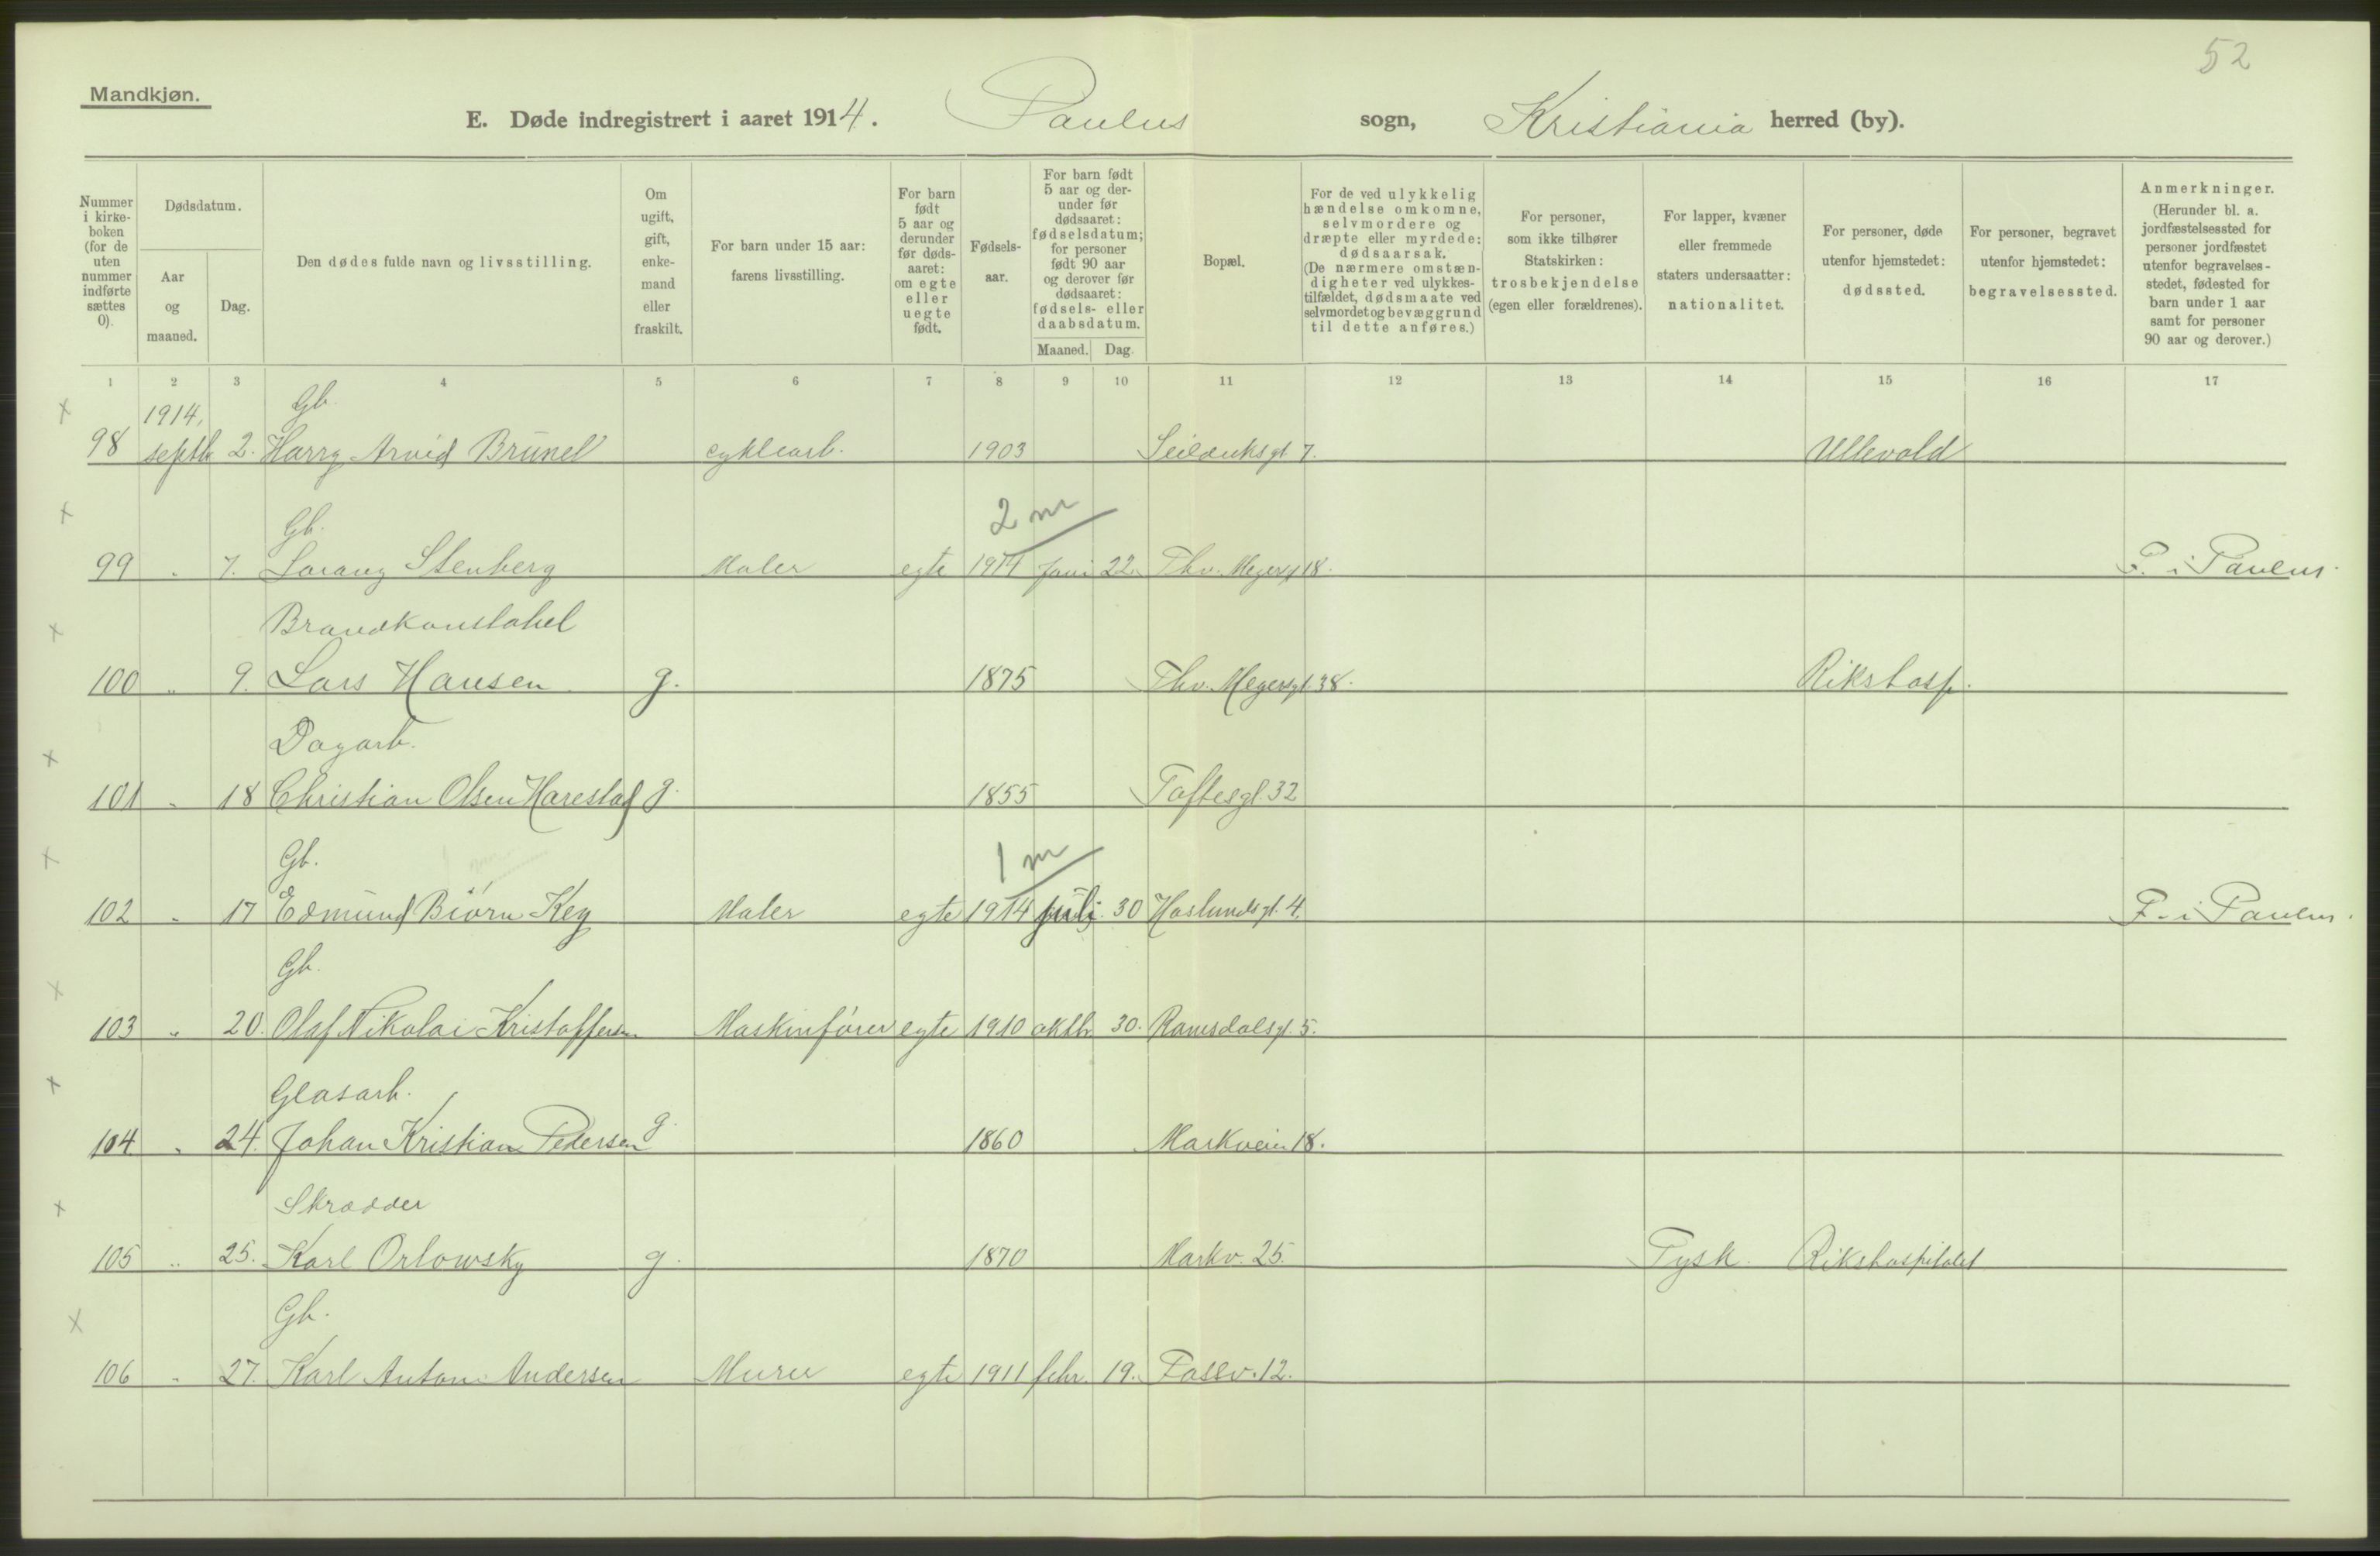 52
Mandkjøn.
E. Døde indregistrert i aaret 1914. Paulus sogn, Kristiania herred (by).
Nummer i kirkeboken (for de uten nummer indførte sættes 0).
Dødsdatum.
Aar og maaned.
Dag.
Den dødes fulde navn og livsstilling.
Om ugift, gift, enkemand eller fraskilt.
For barn under 15 aar: farens livsstilling.
For barn født 5 aar og derunder før dødsaaret: om egte eller uegte født.
Fødselsaar.
For barn født 5 aar og derunder før dødsaaret: fødselsdatum; for personer født 90 aar og derover før dødsaaret: fødsels- eller daabsdatum.
Maaned. Dag.
Bopæl.
For de ved ulykkelig hændelse omkomne, selvmordere og dræpte eller myrdede: dødsaarsak. (De nærmere omstændigheter ved ulykkestilfældet, dødsmaate ved selvmordet og bevæggrund til dette anføres.)
For personer, som ikke tilhører Statskirken: trosbekjendelse (egen eller forældrenes).
For lapper, kvæner eller fremmede staters undersaatter: nationalitet.
For personer, døde utenfor hjemstedet: dødssted.
For personer, begravet utenfor hjemstedet: begravelsessted.
Anmerkninger. (Herunder bl. a. jordfæstelsessted for personer jordfæstet utenfor begravelsesstedet, fødested for barn under 1 aar samt for personer 90 aar og derover.)
1 2 3 4 5 6 7 8 9 10 11 12 13 14 15 16 17
x 1914, Gb.
98 septb 2. Harry Arvid Brunel cyklearb. 1903 Seilduksgt 7. Ullevold
x Gb. 2 m
99 " 7. Lorang Stenberg Maler egte 1914 Juni 22. Thv. Meyersg 18. F. i Paulus.
x Brandkonstabel
100 " 9. Lars Hansen g. 1875 Thv. Meyersgt. 38. Rikshosp.
x Dagarb.
101 " 18 Christian Olsen Harestad g. 1855 Toftesgt. 32
x Gb. 1 m
102 " 17 Edmund Biørn Key Maler egte 1914 juli 30 Haslundsgt. 4. F. i Paulus.
x Gb.
103 " 20. Olaf Nikolai Kristoffersen Maskinfører egte 1910 oktbr 30. Romsdalsgt. 5.
x Glasarb.
104 " 24. Johan Kristian Pedersen g. 1860 Markveien 18.
x Skrædder
105 " 25. Karl Orlowsky g. 1870 Markv. 25. Tysk. Rikshospitalet
x Gb.
106 " 27. Karl Anton Andersen Murer egte 1911 febr. 19. Fossv. 12.